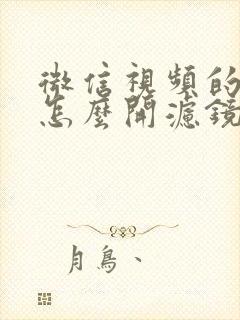 微信視頻的
怎麼開濾鏡
月鳥、